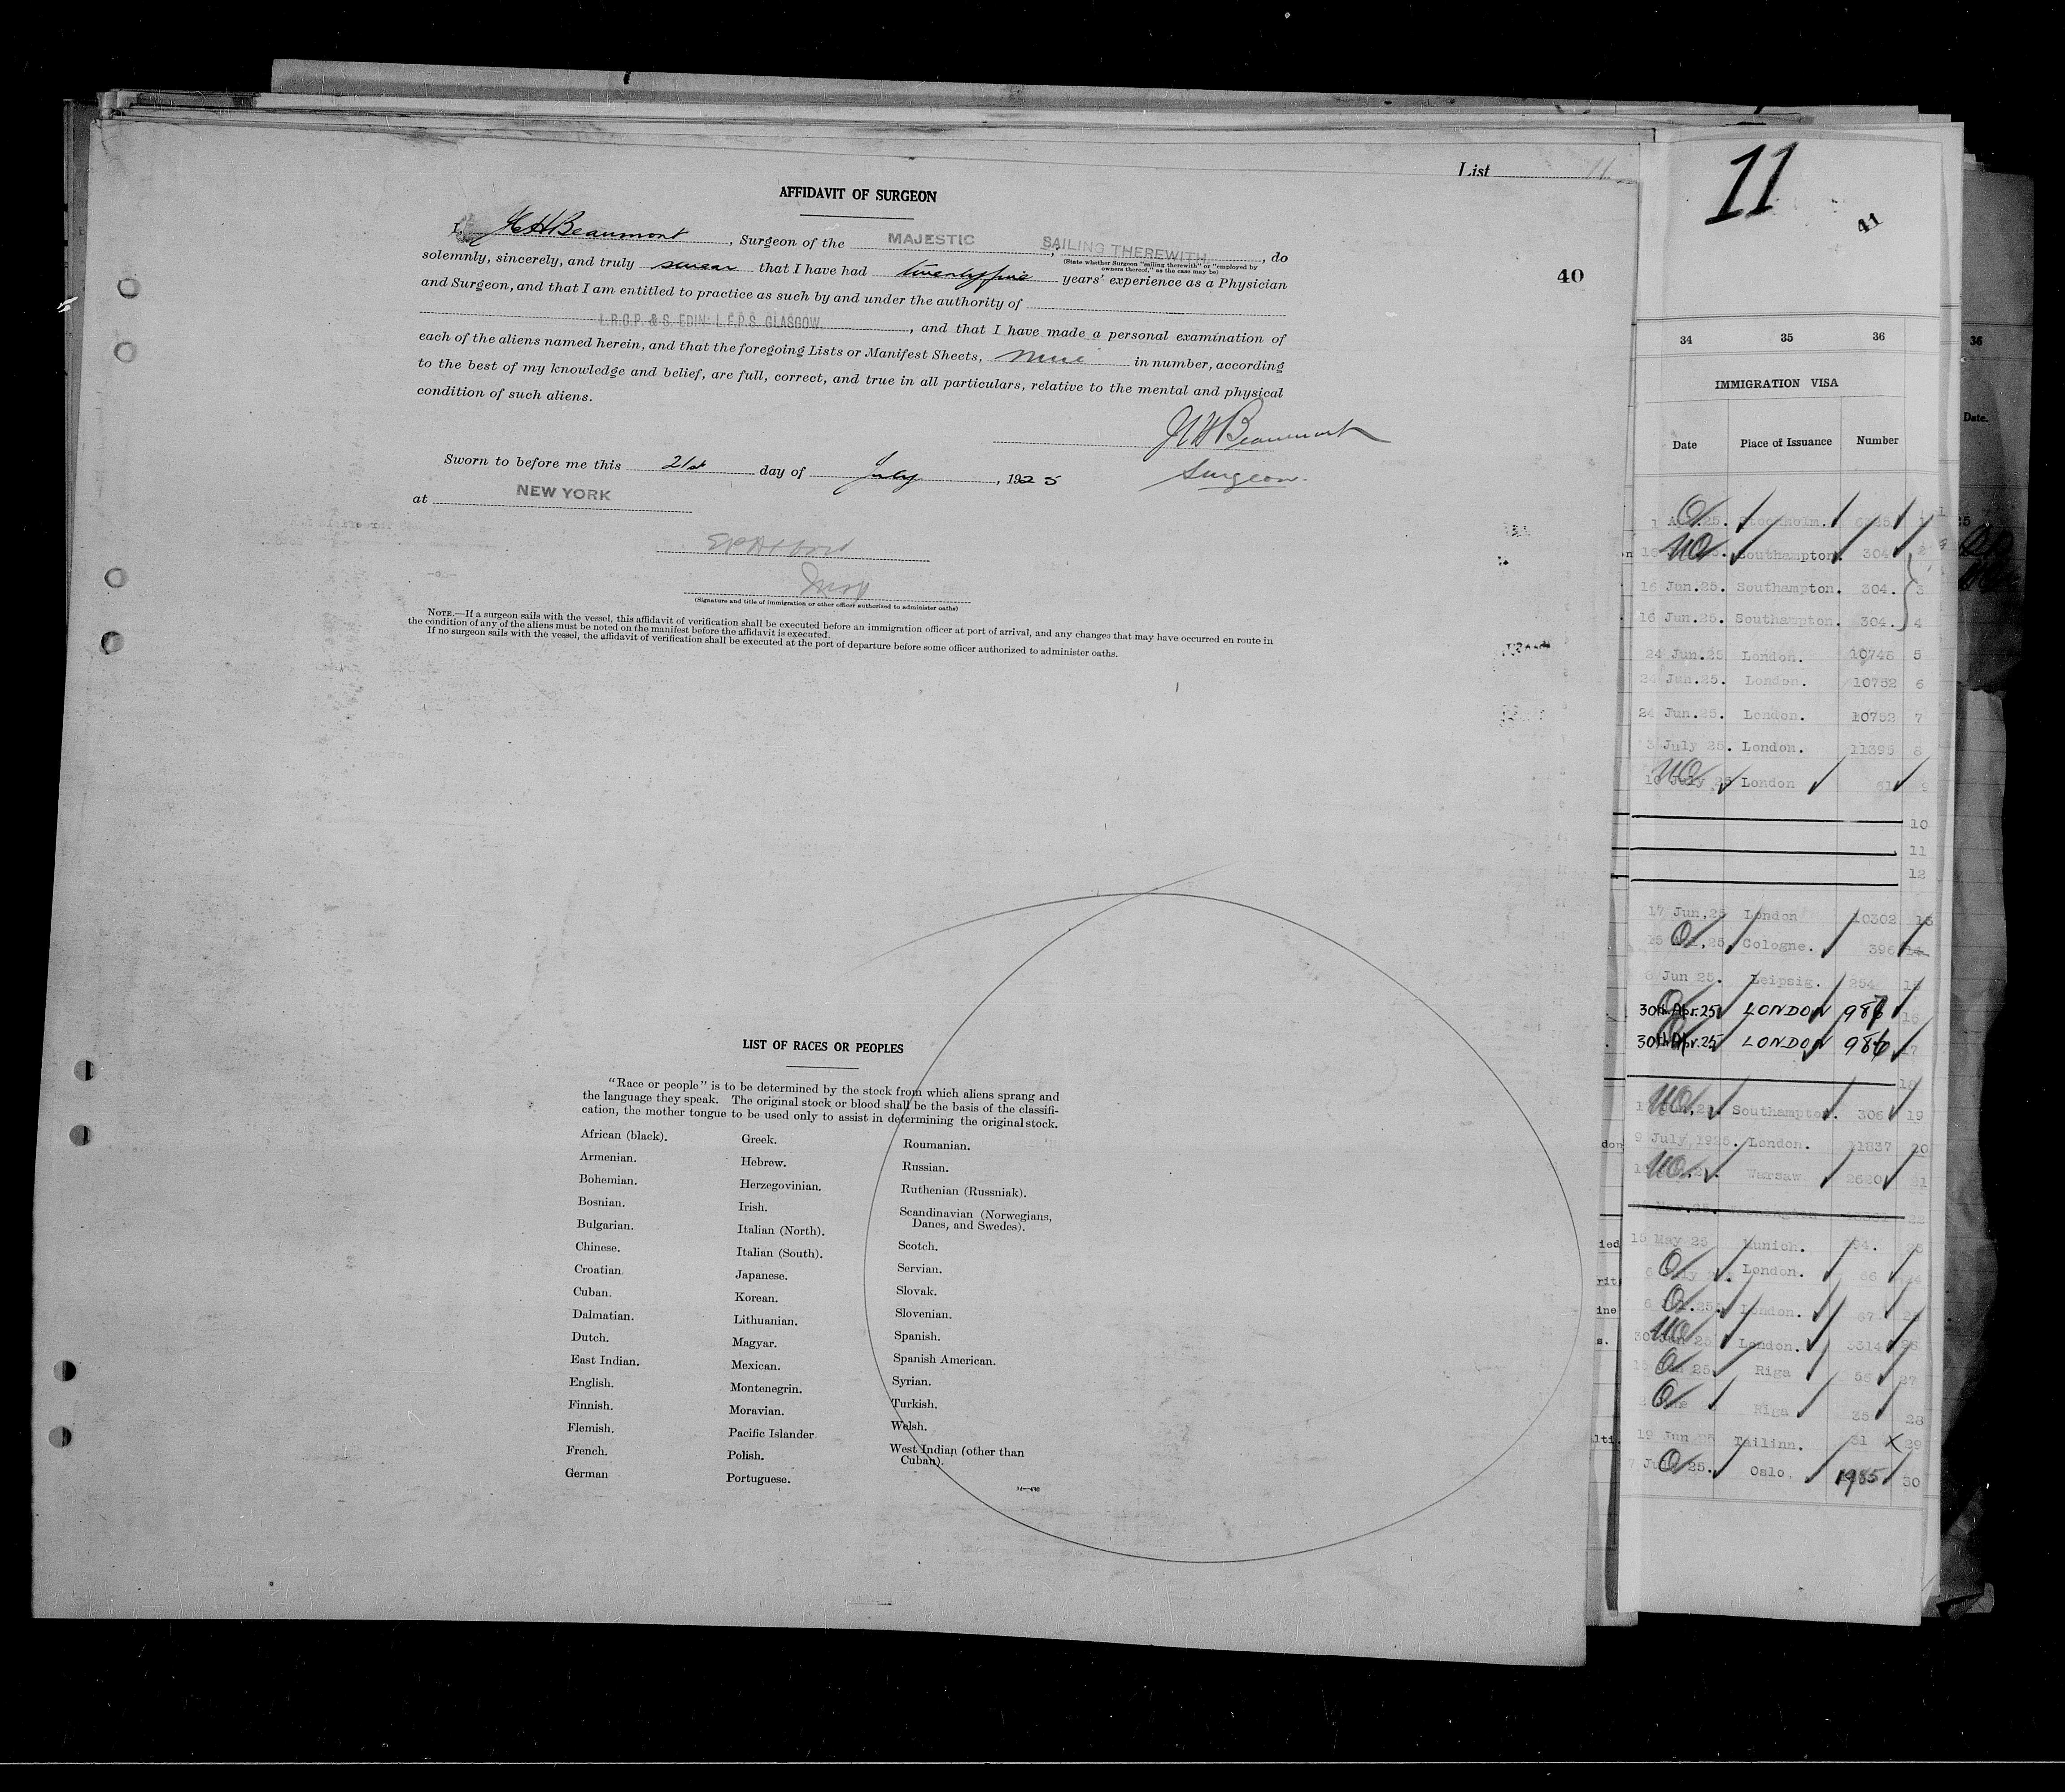 List 11
AFFIDAVIT OF SURGEON
I, Beaumont, Surgeon of the MAJESTIC, SAILING THEREWITH, do
(State whether Surgeon "sailing therewith" or "employed by
owners thereof," as the case may be)
solemnly, sincerely, and truly swear that I have had twentyfive years' experience as a Physician
and Surgeon, and that I am entitled to practice as such by and under the authority of
L.R.C.P. & S. EDIN: L.F.P.S. GLASGOW, and that I have made a personal examination of
each of the aliens named herein, and that the foregoing Lists or Manifest Sheets, nine in number, according
to the best of my knowledge and belief, are full, correct, and true in all particulars, relative to the mental and physical
condition of such aliens.
Beaumont
Surgeon.
Sworn to before me this 21st day of July, 1925
at NEW YORK
Insp
(Signature and title of immigration or other officer authorized to administer oaths)
NOTE.—If a surgeon sails with the vessel, this affidavit of verification shall be executed before an immigration officer at port of arrival, and any changes that may have occurred en route in
the condition of any of the aliens must be noted on the manifest before the affidavit is executed.
If no surgeon sails with the vessel, the affidavit of verification shall be executed at the port of departure before some officer authorized to administer oaths.
40
LIST OF RACES OR PEOPLES
"Race or people" is to be determined by the stock from which aliens sprang and
the language they speak. The original stock or blood shall be the basis of the classifi-
cation, the mother tongue to be used only to assist in determining the original stock.
African (black).
Armenian.
Bohemian.
Bosnian.
Bulgarian.
Chinese.
Croatian
Cuban.
Dalmatian.
Dutch.
East Indian.
English.
Finnish.
Flemish.
French.
German
Greek.
Hebrew.
Herzegovinian.
Irish.
Italian (North).
Italian (South).
Japanese.
Korean.
Lithuanian.
Magyar.
Mexican.
Montenegrin.
Moravian.
Pacific Islander
Polish.
Portuguese.
Roumanian.
Russian.
Ruthenian (Russniak).
Scandinavian (Norwegians,
Danes, and Swedes).
Scotch.
Servian.
Slovak.
Slovenian.
Spanish.
Spanish American.
Syrian.
Turkish.
Welsh.
West Indian (other than
Cuban).
11
41
34 35 36
IMMIGRATION VISA
Date Place of Issuance Number
Stockholm. 1
Southampton. 304 2
16 Jun.25. Southampton. 304. 3
16 Jun.25. Southampton. 304. 4
24 Jun.25 London. 10748 5
24 Jun.25. London. 10752 6
24 Jun.25. London. 10752 7
3 July 25. London. 11395 8
10 July 25 London 61 9
10
11
12
17 Jun,25 London 10302 13
Cologne. 396 14
Jun 25. Leipsig. 254 15
30th Apr.25 LONDON 16
30th Apr.25 LONDON 17
18
Southampton. 306 19
9 July,1925. London. 11837 20
Warsaw 21
22
15 May 25 Munich. 23
London. 24
London. 67 25
London. 3314 26
Riga 56 27
Riga 28
19 Jun 25 Tallinn. 31 29
Oslo. 1985 30
36
Date.